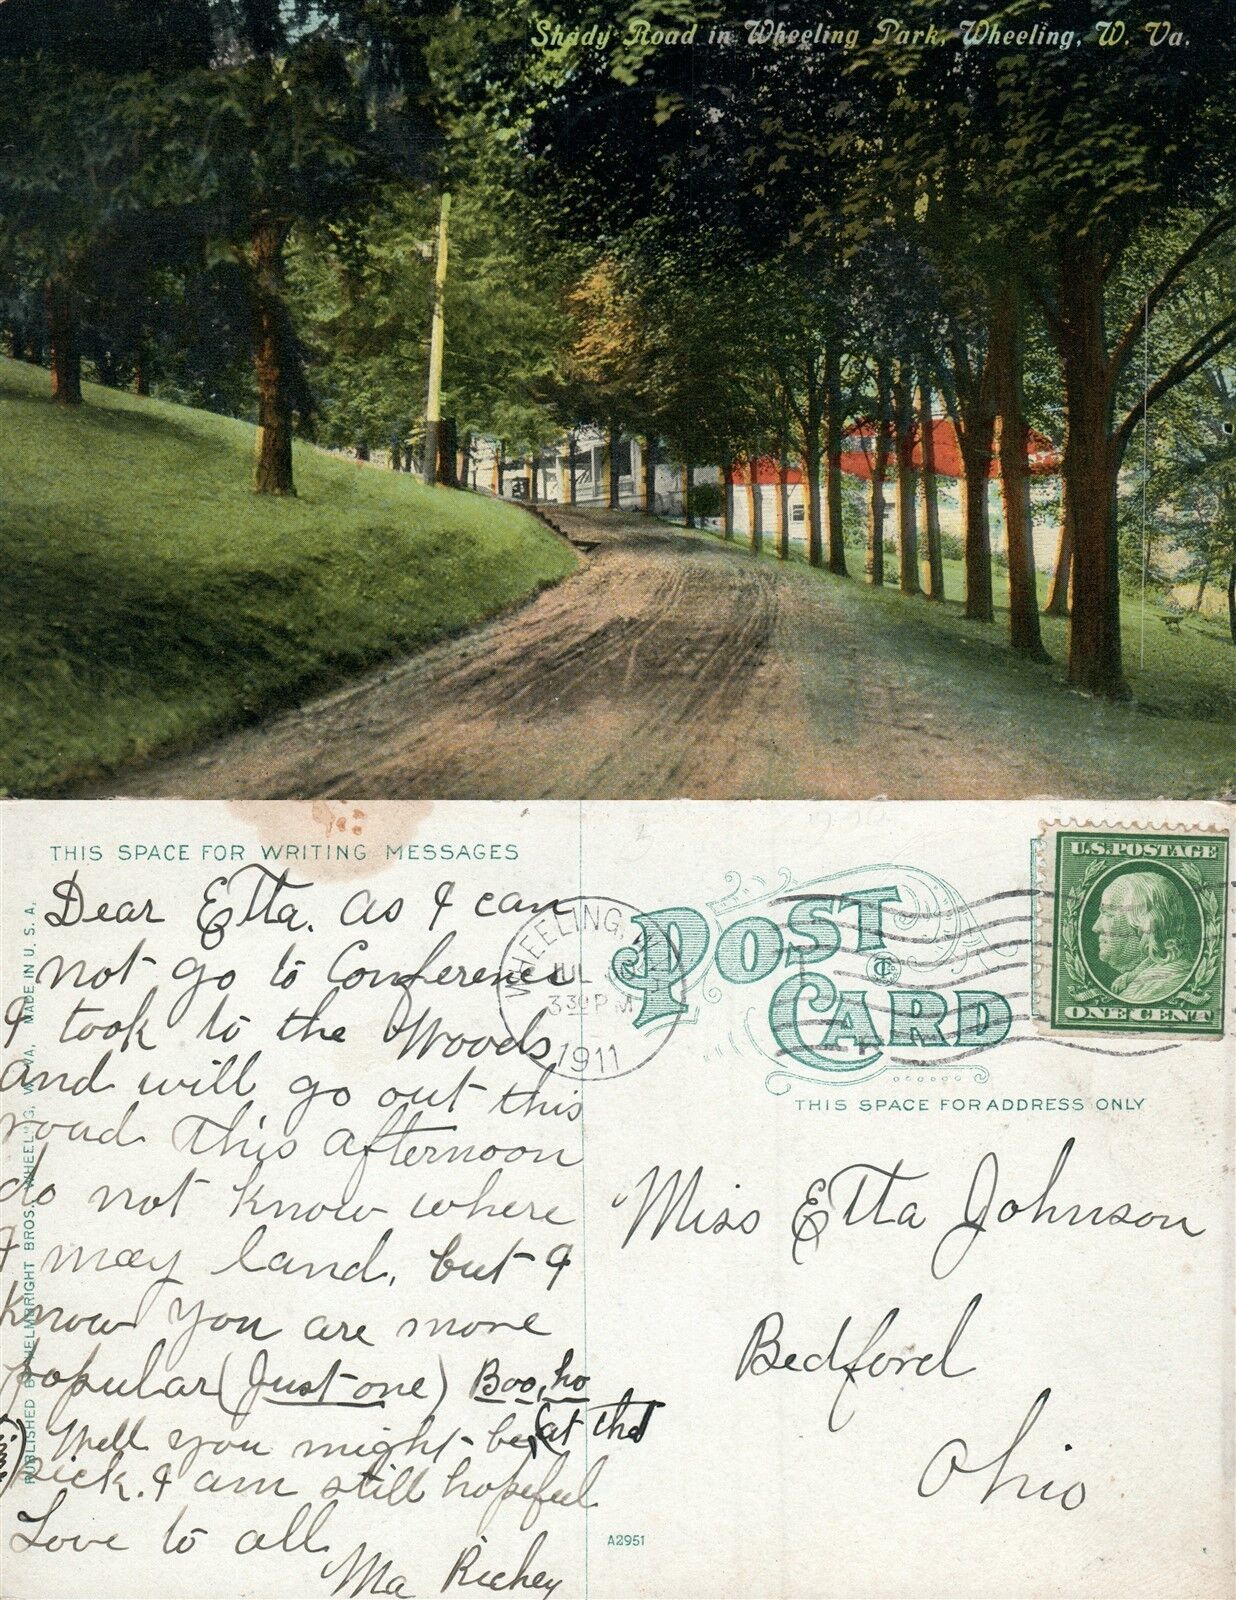 Shady Road in Wheeling Park, Wheeling, W. Va.
THIS SPACE FOR WRITING MESSAGES
Dear Etta. as I can
not go to Conference
I took to the Woods
and will go out this
road this afternoon
do not know where
I may land, but I
know you are more
popular (Just one) Boo, ho
Well you might be (at that
pick. I am still hopeful
Love to all
Ma Richey
PUBLISHED BY HELMBRIGHT BROS., WHEELING, W. VA. MADE IN U. S. A.
WHEELING, W.
JUL
3 30 P M
1911
POST
CARD
U.S. POSTAGE
ONE CENT
THIS SPACE FOR ADDRESS ONLY
Miss Etta Johnson
Bedford
Ohio
A2951